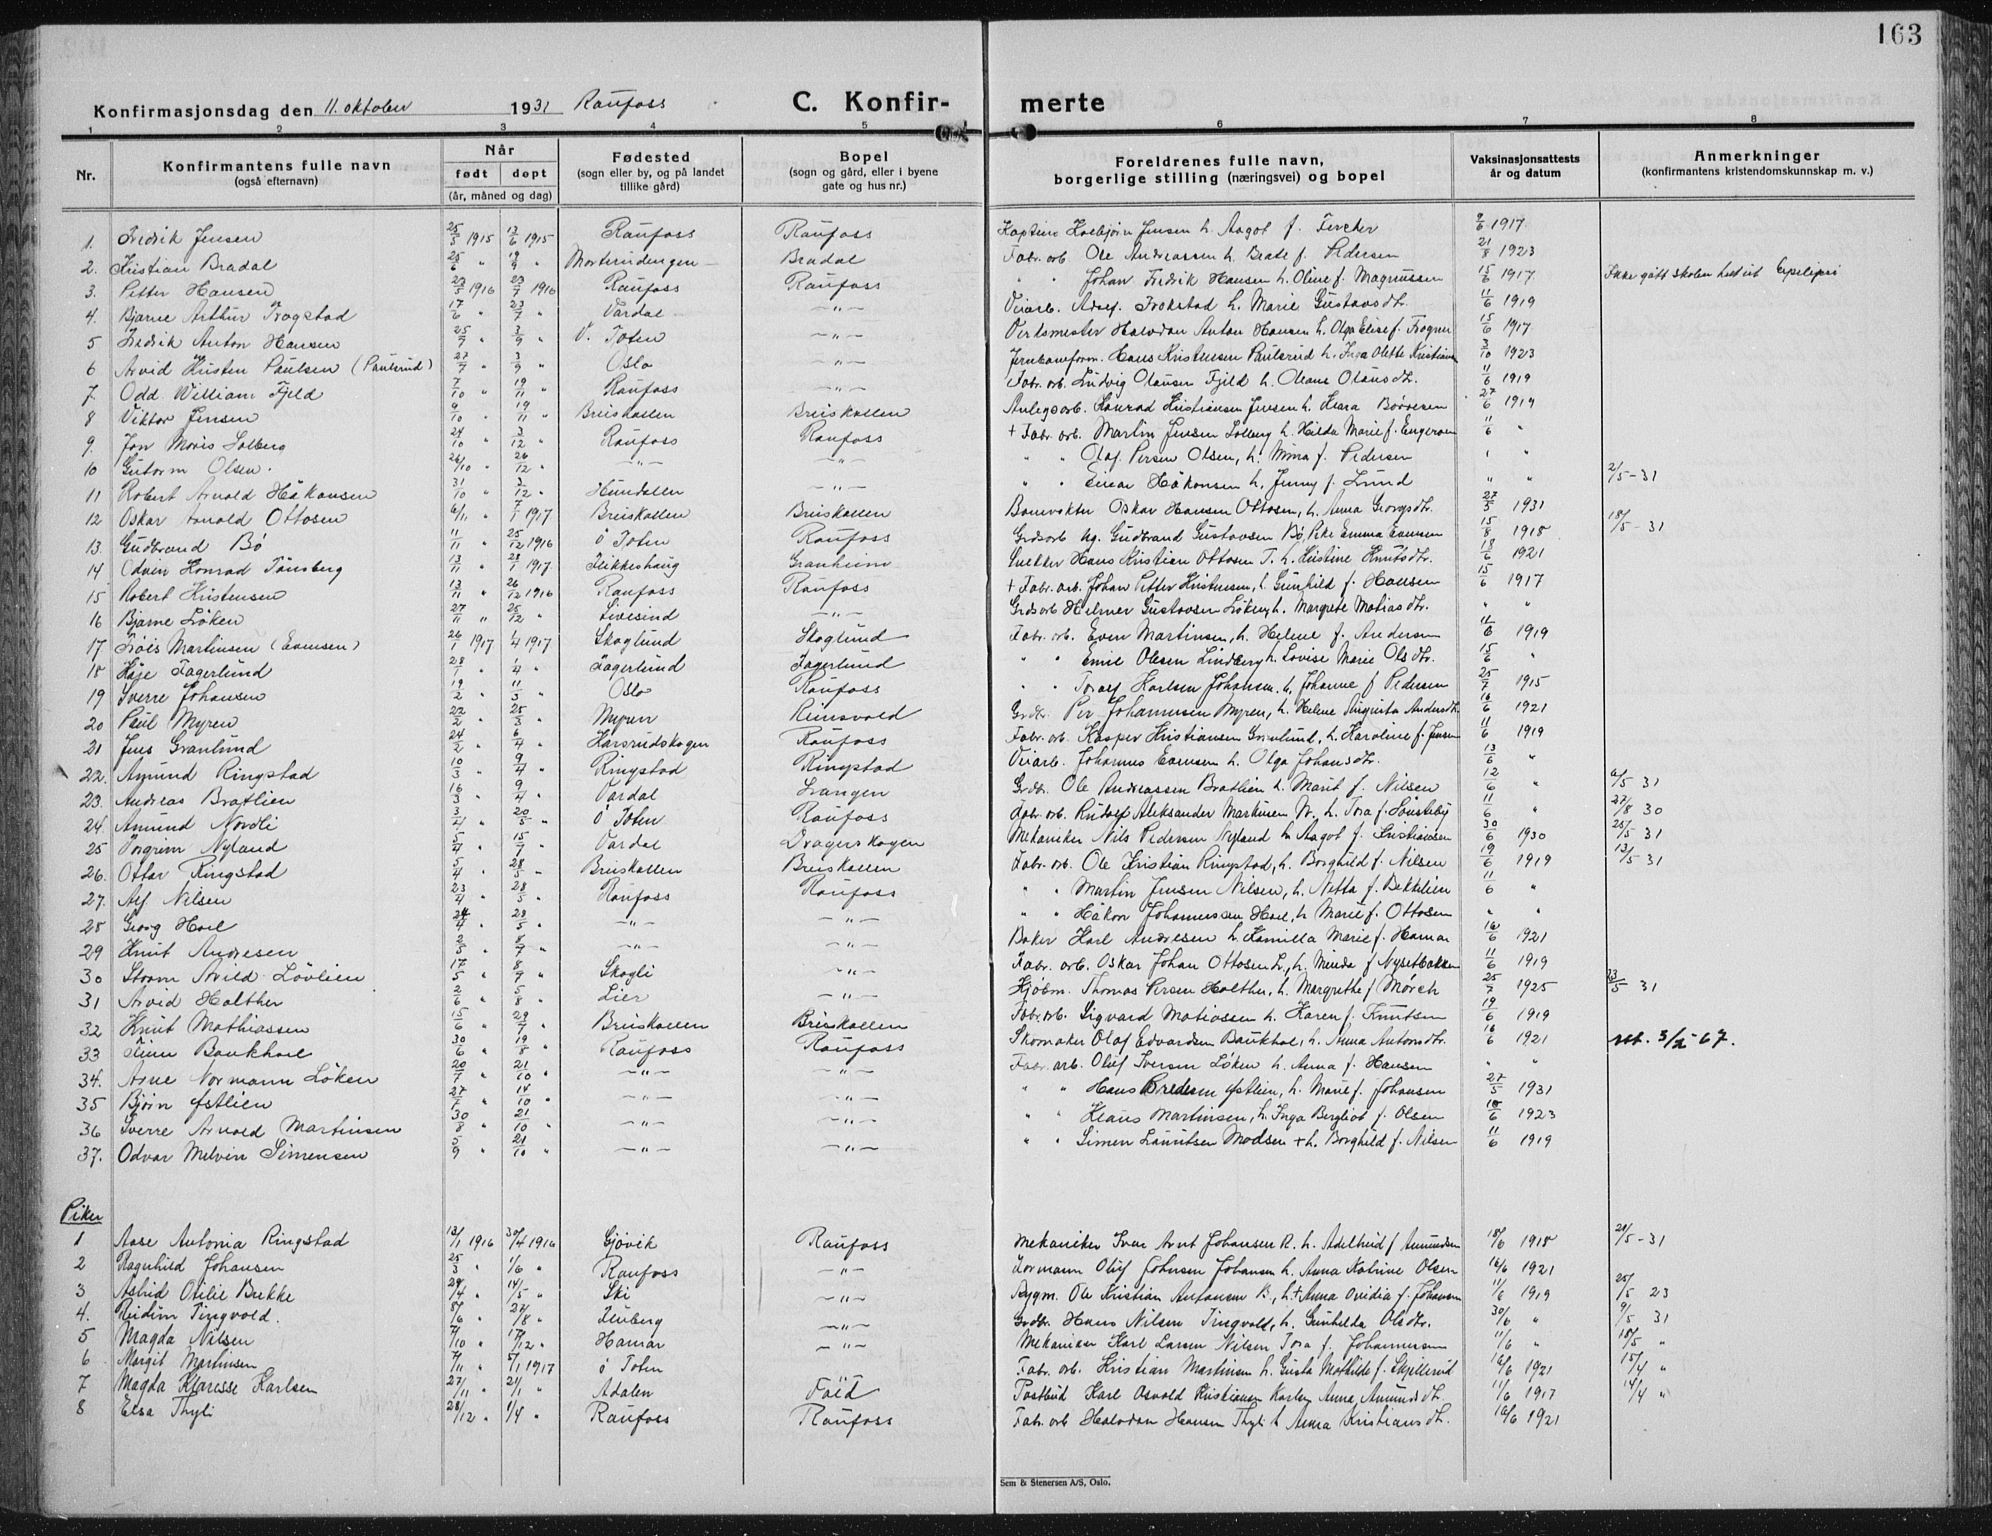 163
Konfirmasjonsdag den 11. oktober 1931 Raufoss C. Konfir- merte
1 2 3 4 5 6 7 8
Nr. Konfirmantens fulle navn (også efternavn) Når født døpt (år, måned og dag) Fødested (sogn eller by, og på landet tillike gård) Bopel (sogn og gård, eller i byene gate og hus nr.) Foreldrenes fulle navn, borgerlige stilling (næringsvei) og bopel Vaksinasjonsattests år og datum Anmerkninger (konfirmantens kristendomskunnskap m. v.)
1. Fredrik Jensen 25/5 1915 13/6 1915 Raufoss Raufoss Jensen h. Aagot f. 9/6 1917
2. Kristian Bradal 25/6 " 19/9 " Bradal Fabr. arb. Ole Andreassen h. Beate f. Pedersen 21/8 1923
3. Petter Hansen 23/5 1916 23/7 1916 Raufoss Raufoss " " Johan Fredrik Hansen h. Oline f. Magnussen 15/6 1917 Ikke gått skolen helt ut Epilepsi
4. Bjarne Arthur Trogstad 17/6 " 23/7 " Vardal — " — Veiarb. h. Marie Gustavsdtr. 11/6 1919
5 Fredrik Anton Hansen 25/7 " 3/9 " V. Toten — " — Halvdan Anton Hansen h. Olga Elise f. Fragner 15/6 1917
6 Arvid Kristen Paulsen (Paulsrud) 27/7 " 3/9 " Oslo — " — Hans Kristensen Paulsrud h. Inga Olette 3/10 1923
7. Odd William Fjeld 7/10 " 19/11 " Raufoss — " — Fabr. arb. Ludvig Olausen Fjeld h. Oleane Olausdtr. 11/6 1919
8 Viktor Jensen 9/10 " 19/11 " Breiskallen Breiskallen Anlegsarb. Konrad Kristiansen Jensen h. Klara Børresen 27/6 1919
9. Jon Moris Solberg 24/10 " 3/12 " Raufoss Raufoss + Fabr. arb. Martin Jensen Solberg h. Hilda Marie f. 11/6 "
10 Gutorm Olsen. 26/10 " 26/12 " — " — — " — " " Olaf Persen Olsen, h. Mina f. Pedersen " "
11 Robert Arnold Håkonsen 31/10 " 3/12 " Hundalen — " — " " Einar Håkonsen h. Jenny f. Lund " " 2/5-31
12 Oskar Arnold Ottosen 6/11 " 7/1 1917 Breiskallen Breiskallen Banevokter Oskar Hansen Ottosen, h. Anna Georgsdtr. 27/5 1931
13. Gudbrand Bø 11/11 " 25/12 1916 Ø Toten Raufoss Grdsarb. Ug. Gudbrand Gustavsen Bø, Pke Emma Evensen 15/8 1918 18/5-31
14 Odven Konrad Tønsberg 13/11 " 28/1 1917 Flikkeshaug Granheim Snekker Hans Kristian Ottosen T. h. Kristine Knutsdtr. 18/6 1921
15 Robert Kristensen 13/11 " 26/12 1916 Raufoss Raufoss + Fabr. arb. Johan Petter Kristensen, h. Gunhild f. Hansen 15/6 1917
16 Bjarne Løken 27/11 " 25/12 " — " — Grdsarb Helmer Gustavsen Løken, h. Margrete Matiasdtr. " "
17. Martinsen (Evensen) 26/1 1917 1/4 1917 Skoglund Skoglund Fabr. arb. Even Martinsen, h. Helene f. Andersen 11/6 1919
18 Fagerlund 28/1 " 1/4 " Fagerlund Fagerlund " " Emil Olesen Lindberg h. Lovise Marie Olsdtr. 15/6 "
19 Sverre Johansen 19/2 " 11/3 " Oslo Raufoss " " Toralf Karlsen Johansen, h. Johanne f Pedersen 25/7 1915
20 Paul Myren 22/2 " 25/3 " Myren Reinsvold Grdbr. Per Johannesen Myren, h. Helene Augusta Andersdtr. 16/6 1921
21 Jens Granlund 24/2 " 6/4 " Harsrudskogen Raufoss Fabr. arb. Kasper Kristiansen Granlund, h. Karoline f. Jensen 11/6 1919
22. Amund Ringstad 10/3 " 9/4 " Ringstad Ringstad Veiarb. Johannes Evensen h. Olga Johansdtr. 13/6 "
23. Andreas Bratlien 16/3 " 9/4 " Vardal Grdbr. Ole Andreassen Bratlien h. Marit f. Nilsen 12/6 " 6/5 31
24. Amund Nordli 3/4 " 20/5 " Ø Toten Raufoss Fabr. arb. Rudolf Aleksander Markusen N. h. Tora f. Sønsteby 11/6 " 27/8 30
25 Torgrim Nyland 5/4 " 15/7 " Vardal Dragerskogen Mekaniker Nils Pedersen Nyland h. Aagot f. Kristiansen 30/6 1930 25/5 31
26. Ottar Ringstad 5/4 " 28/5 " Breiskallen Breiskallen Fabr. arb. Ole Kristian Ringstad, h. Borghild f. Nilsen 19/6 1919 13/5 31
27. Alf Nilsen 23/4 " 28/5 " Raufoss Raufoss " " Martin Jensen Nilsen, h. Netta f. Bekkelien 11/6 "
28 Georg Hoel 24/4 " 28/5 " — " — — " — " " Håkon Johannessen Hoel, h. Marie f. Ottosen " "
29 Knut Andresen 2/5 " 8/7 " — " — — " — Baker Karl Andresen h. Kamilla Marie f. Hamar 16/6 1921
30 Storm Arild Løvlien 17/5 " 8/7 " Skogli — " — Fabr. arb. Oskar Johan Ottosen L., h. Minda f Nysetbakken 11/6 1919
31 Arvid Holther 2/6 " 5/8 " Lier — " — Kjøbm. Thomas Persen Holther, h. Margrethe f Mørch 25/7 1925 23/5 31
32 Knut Mathiassen 15/6 " 29/7 " Breiskallen Breiskallen Fabr. arb. Sigvard Matiassen h. Karen f. Knutsen 19/6 1919
33 Baukhol 30/6 " 19/8 " Raufoss Raufoss Skomaker Olaf Edvardsen Baukhol, h. Anna Antonsdtr. 16/6 1921 3/2-67.
34. Arne Normann Løken 20/7 " 21/10 " — " — — " — Fabr. arb. Oluf Iversen Løken h. Anna f. Hansen " "
35 Bjørn Østlien 27/7 " 14/10 " — " — — " — " " Hans Bredesen Østlien, h. Marie f. Johansen 27/5 1931
36 Sverre Arnold Martinsen 30/8 " 21/10 " — " — — " — " " Klaus Martinsen, h. Inga Bergliot f. Olsen 18/6 1923
37. Odvar Melvin Simensen 5/9 " 21/10 " — " — — " — " " Simen Lauritsen Madsen + h. Borghild f. Nilsen 11/6 1919
Piker
1 Aase Antonia Ringstad 13/1 1916 30/4 1916 Gjøvik Raufoss Mekaniker Ivar Arnt Johansen R. h. Adelheid f Amundsen 18/6 1918 21/5-31
2 Ragnhild Johansen 25/3 " 1/6 " Raufoss — " — Formann Oluf Johnsen Johansen h. Anna Katrine Olsen 16/6 1921
3 Astrid Otilie Bukke 29/4 " 14/5 " Ski — " — Bygm. Ole Kristian Antonsen B., h. + Anna Ovidia f. Johansen 11/6 1919 25/5 23
4. Reidun Tingvold. 8/6 " 27/8 " Furberg — " — Grdbr. Hans Nilsen Tingvold, h. Gunhilda Olsdtr. 30/6 " 9/5 31
5 Magda Nilsen /10 " 17/12 " Hamar — " — Mekaniker Karl Larsen Nilsen Tora f. Johannessen 11/6 " 18/5 "
6 Margit Martinsen /11 " 5/1 1917 Ø Toten Fabr. arb. Kristian Martinsen h. Gusta Mathilde f. Skjellerud 16/6 1921 15/4 "
7 Magda Klaresse Karlsen 27/11 " 21/1 " Ådalen Postbud Karl Osvald Kristiansen Karlsen Anna Amundsdtr. 11/6 1917 14/4 "
8 Elsa Thyli 28/12 " 1/4 " Raufoss Raufoss Fabr. arb Halvdan Hansen Thyli h Anna Kristiansdtr. 16/6 1921
Sem & Stenersen A/S, Oslo.